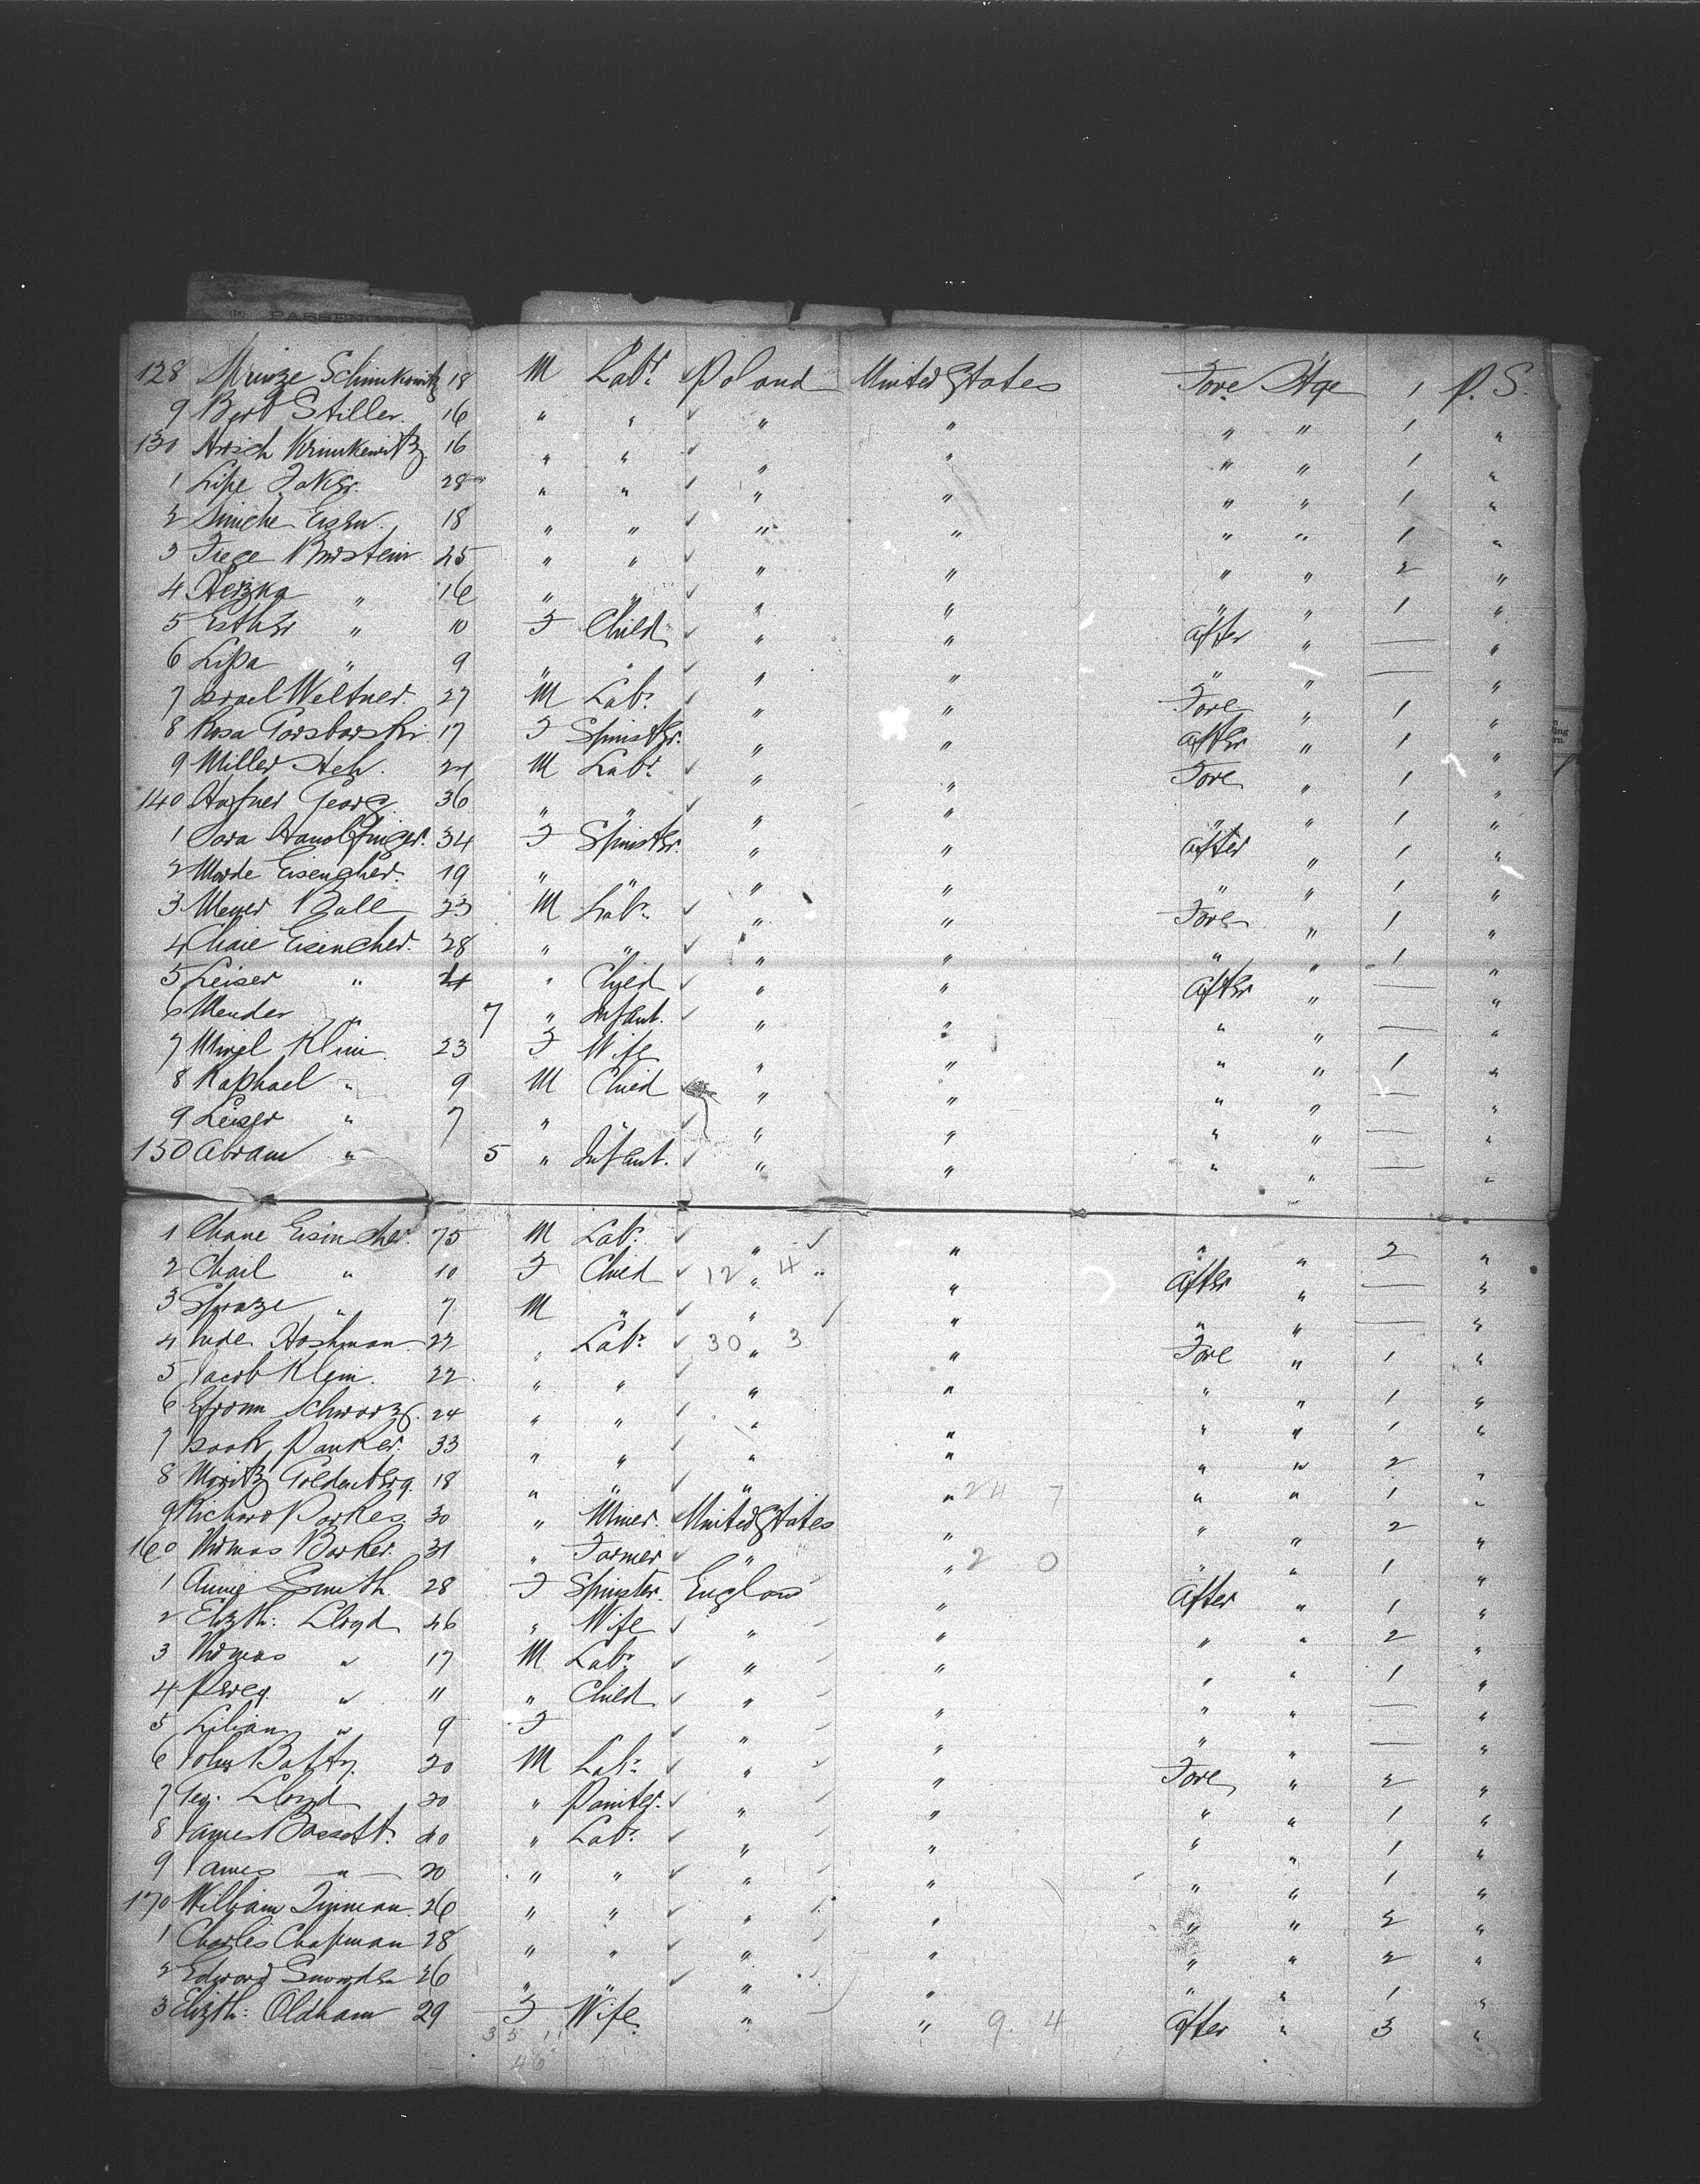 PASSENGERS
128 Schimkowitz 18 M Labr. Poland United States Fore Stge 1 P. S.
9 Bert Stiller. 16 " " " " " " 1 "
130 Hirsch 16 " " " " " " 1 "
1 Lipe 28 " " " " " " 1 "
2 Simche Eisen. 18 " " " " " " 1 "
3 Fiege 25 " " " " " " 2 "
4 " 16 " " " " " " 1 "
5 Esther " 10 F Child " " After " — "
6 Lipa " 9 " " " " " " — "
7 Israel Weltner. 27 M Labr. " " Fore " 1 "
8 Rosa 17 F Spinster. " " After " 1 "
9 Miller 24 M Labr. " " Fore " 1 "
140 Georg 36 " " " " " " 1 "
1 Sara 34 F Spinster. " " After " 1 "
2 19 " " " " " " 1 "
3 Meyer Ball 23 M Labr. " " Fore " 1 "
4 Chaie Eisencher. 28 " " " " " " 1 "
5 Leiser " " Child " " After " — "
6 Mender " 7 " Infant. " " " " — "
7 23 F Wife " " " " 1 "
8 Raphael " 9 M Child " " " " — "
9 Leiser " 7 " " " " " " — "
150 Abram " 5 " Infant. " " " " — "
1 Chane Eisencher. 75 M Labr. " " " " 2 "
2 " 10 F Child 12 " 4 " After " — "
3 " 7 M " " " " " — "
4 Hoshman 22 " Labr. 30 " 3 " Fore " 1 "
5 Jacob Klein. 22 " " " " " " 1 "
6 Schwarz. 24 " " " " " " 1 "
7 Isaak Panker. 33 " " " " " " 2 "
8 Moritz Goldenberg. 18 " " " " 24 7 " " 1 "
9 Richard Parkes 30 " Miner. United States " " " 2 "
160 Thomas Barker. 31 " Farmer " " 2 0 " " 1 "
1 Annie Smith 28 F Spinster. England " After " 1 "
2 Elizth: Lloyd 46 " Wife " " " " 2 "
3 Thomas " 17 M Labr. " " " " 1 "
4 Percy " 11 " Child " " " " — "
5 Lilian " 9 F " " " " — "
6 John Batty. 20 M Labr. " " Fore " 2 "
7 Geo. Lloyd 30 " Painter. " " " " 1 "
8 James Bassett. 40 " Labr. " " " " 1 "
9 James — " — 20 " " " " " " 1 "
170 William 26 " " " " " " 2 "
1 Charles Chapman 28 " " " " " " 2 "
2 Edward Snowden 26 " " " " " " 1 "
3 Elizth: Oldham 29 F Wife. " " 9. 4 After " 3 "
35 11
46